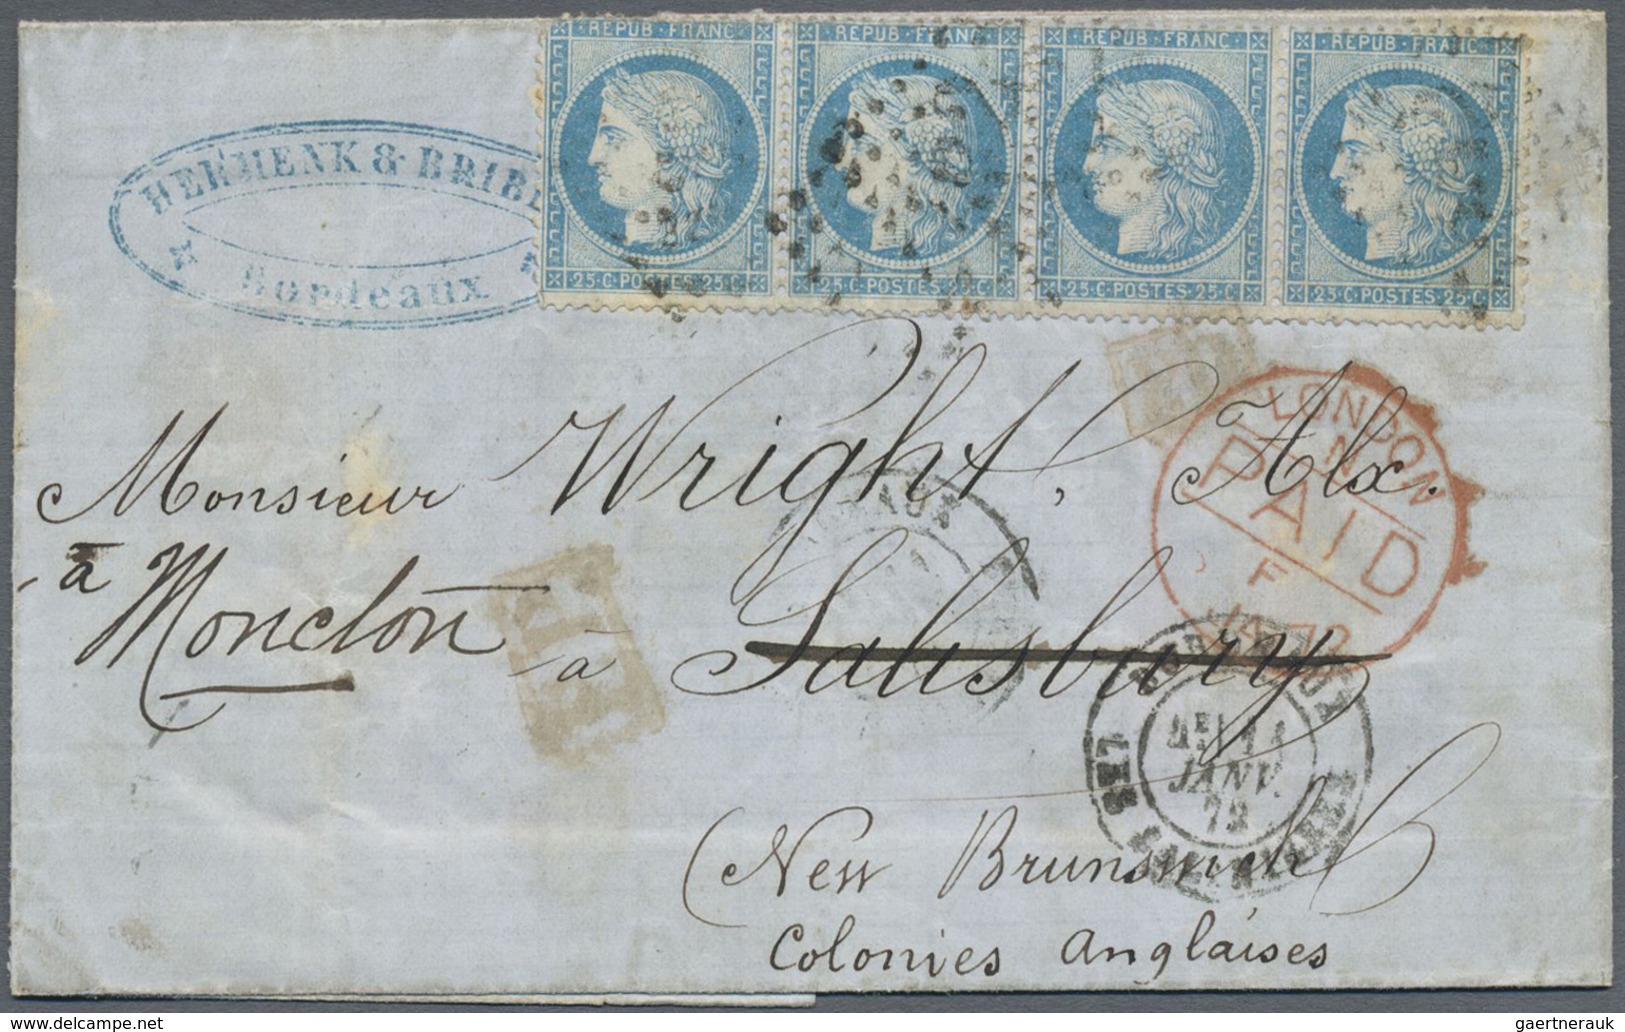 REPUB·FRANC REPUB·FRANC REPUB·FRANC REPUB·FRANC
25·C·POSTES·25·C· 25·C·POSTES·25·C· 25·C·POSTES·25·C· 25·C·POSTES·25·C·
HERMENK & BRIBE
Bordeaux
LONDON
N
PAID
F
72
Monsieur Wright, Alx.
à Moncton à Salisbury
BORDEAUX
11
JANV.
72
LES
New Brunswick
Colonies Anglaises
www.delcampe.net
gaertnerauk